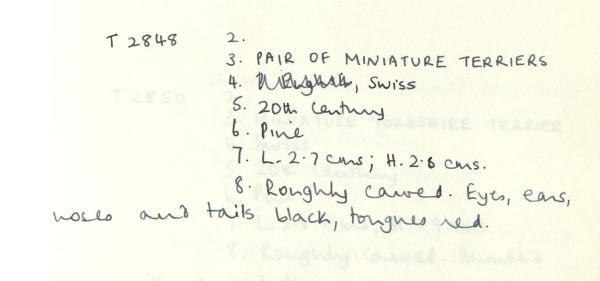 T 2848 2.
3. PAIR OF MINIATURE TERRIERS
4. Swiss
5. 20th Century
6. Pine
7. L. 2.7 cms; H. 2.6 cms.
8. Roughly carved. Eyes, ears,
noses and tails black, tongues red.